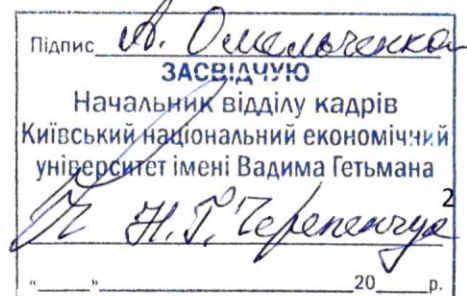 Підпис А. Омельченка
ЗАСВІДЧУЮ
Начальник відділу кадрів
Київський національний економічний
університет імені Вадима Гетьмана
2
Н. Г. Черепенчук
"____"____________20____р.